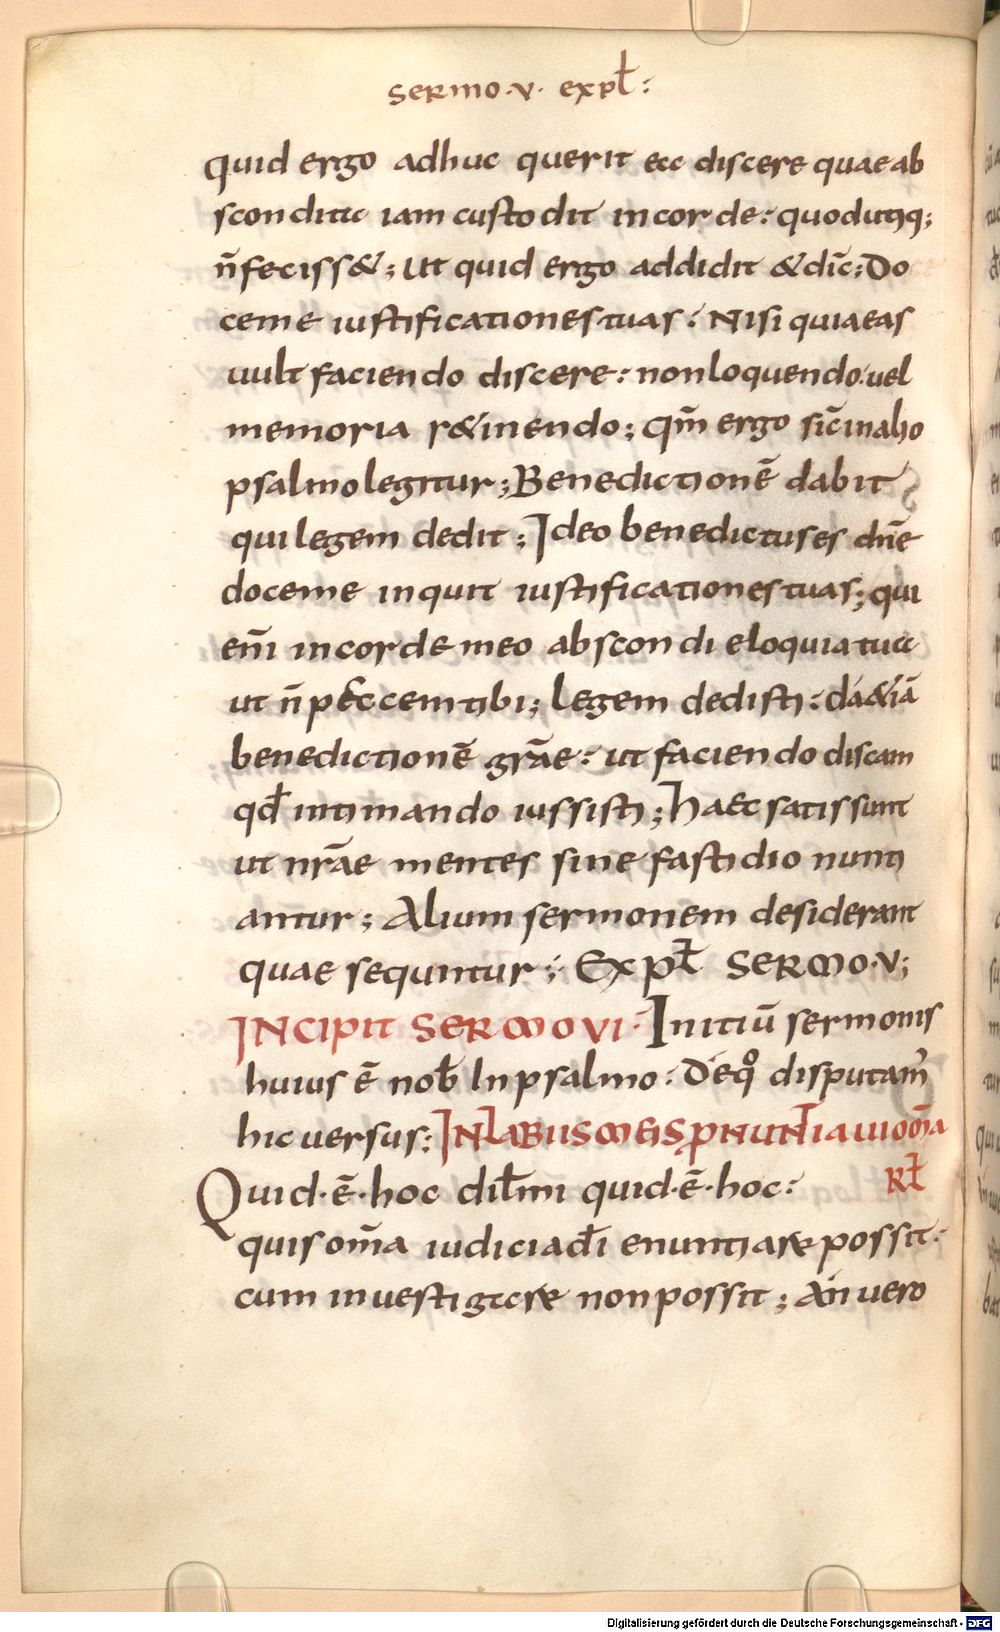 sermo·v· expł:
quid ergo adhuc querit ea discere quae ab
scondita iam custodit in corde: quod utiq;
n̄ feciss&; ut quid ergo addidit & dic̄; Do
ce me iustificationes tuas: Nisi quia eas
uult faciendo discere: non loquendo: uel
memoria r&inendo; Qm̄ ergo sic̄ in alio
psalmo legitur; Benedictionē dabit
qui legem dedit; Ideo benedictus es dn̄e
doce me inquit iustificationes tuas; qui
eni̅ in corde meo abscondi eloquia tua
ut n̄ peccem tibi; legem dedisti: da &iā
benedictionē gr̄ae: ut faciendo discam
qđ intimando iussisti; Haec satis sunt
ut nr̄ae mentes sine fastidio nunti
antur; Alium sermonem desiderant
quae sequntur; Expł SERMO·V;
INCIPIT SERMO VI· Initiū sermonis
huius ē nob̄ In psalmo: De qͦ disputam̄
hic uersus: IN LABIIS MEIS PNUNTIAUI OM̄A
Quid·ē·hoc dil̄mi quid·ē·hoc: RŁ
quis om̄a iudicia di̅ enuntiare possit:
cum inuestigare non possit; An uero
Digitalisierung gefördert durch die Deutsche Forschungsgemeinschaft - DFG